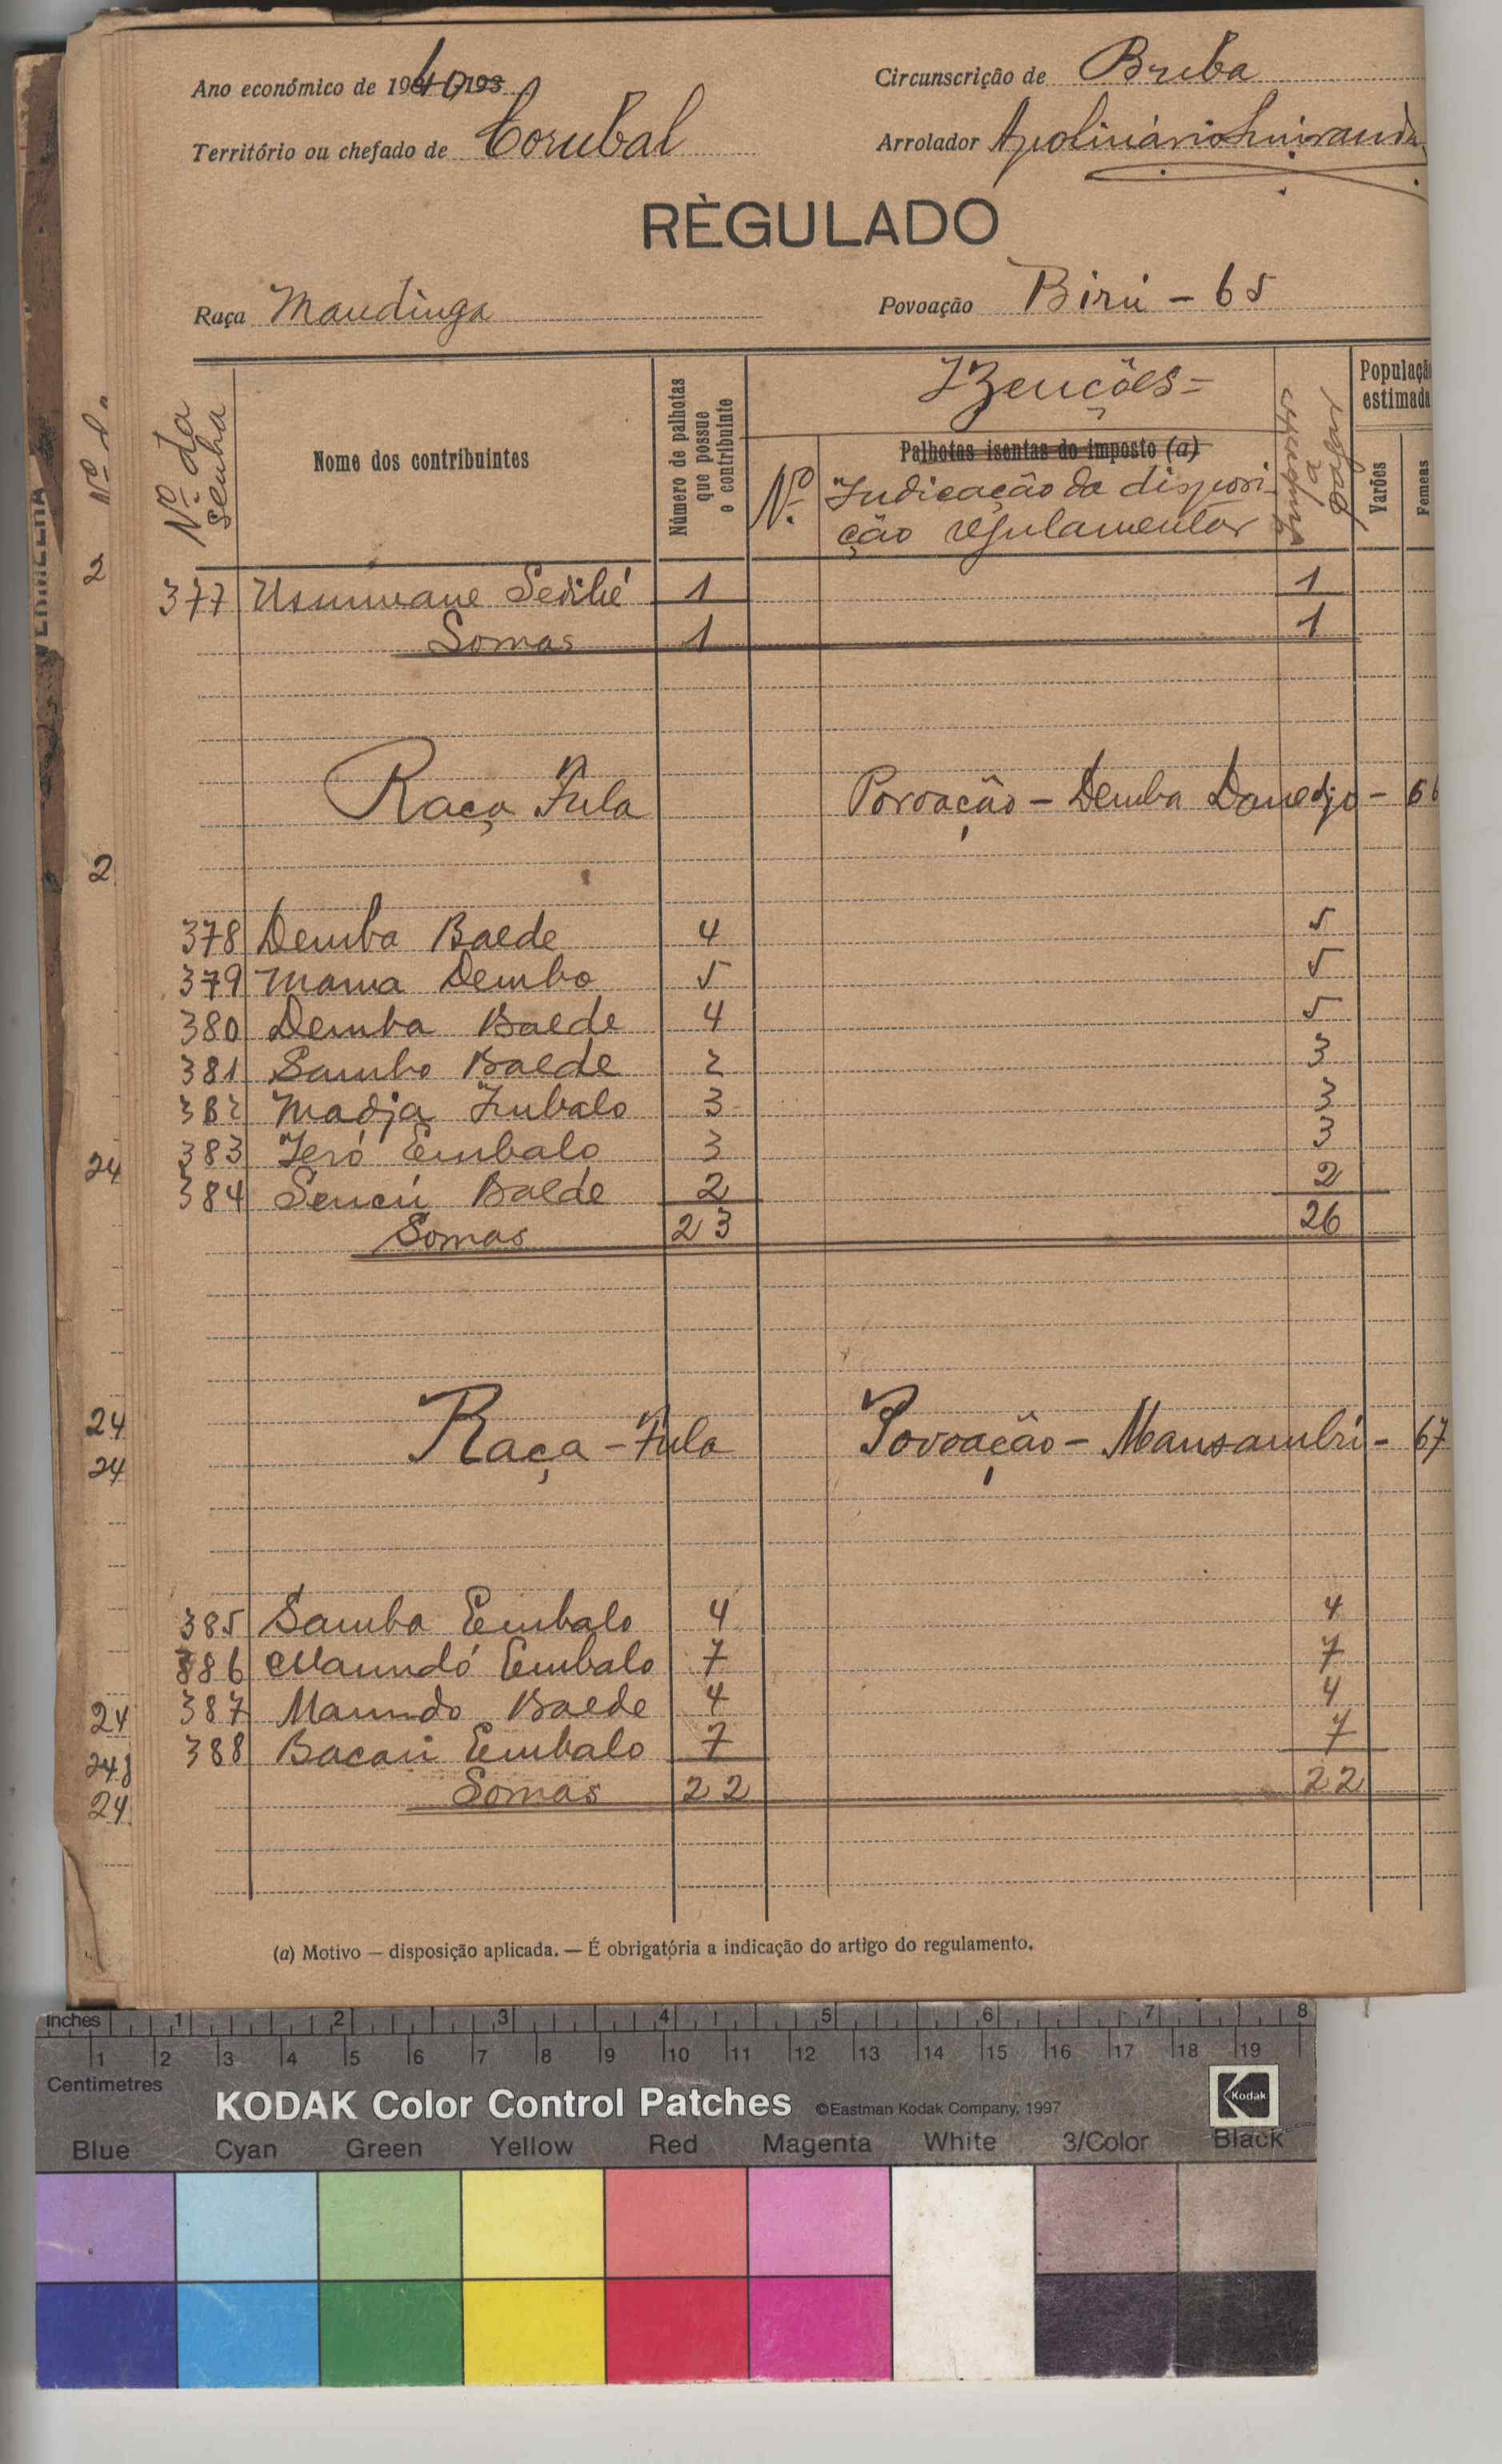 Ano económico de 1940
Circunscrição de Buba
Território ou chefado de Corubal
Arrolador Apolinário Miranda
RÈGULADO
Raça Mandinga
Povoação Birú - 65
Nº da senha
Nome dos contribuintes
Número de palhotas que possue o contribuinte
Izenções=
Palhotas isentas do imposto (a)
Nº
Indicação da disposi-
ção regulamentar
Impostos a pagar
População estimada
Varões
Femeas
377 Usumane Sedibé 1 1
Somas 1 1
Raça Fula Povoação - Demba Danedjo - 66
378 Demba Baede 4 5
379 Mama Dembo 5 5
380 Demba Baede 4 5
381 Sambo Baede 2 3
382 Madja Embalo 3 3
383 Ieró Embalo 3 3
384 Sencú Balde 2 2
Somas 23 26
Raça - Fula Povoação - Mansambú - 67
385 Samba Embalo 4 4
386 Mamudó Embalo 7 7
387 Mamudo Baede 4 4
388 Bacari Embalo 7 7
Somas 22 22
(a) Motivo — disposição aplicada. — É obrigatória a indicação do artigo do regulamento.
Nº d.
2
2
24
24
24
24
24
24
inches 1 2 3 4 5 6 7 8
1 2 3 4 5 6 7 8 9 10 11 12 13 14 15 16 17 18 19
Centimetres
KODAK Color Control Patches ©Eastman Kodak Company, 1997 Kodak
Blue Cyan Green Yellow Red Magenta White 3/Color Black